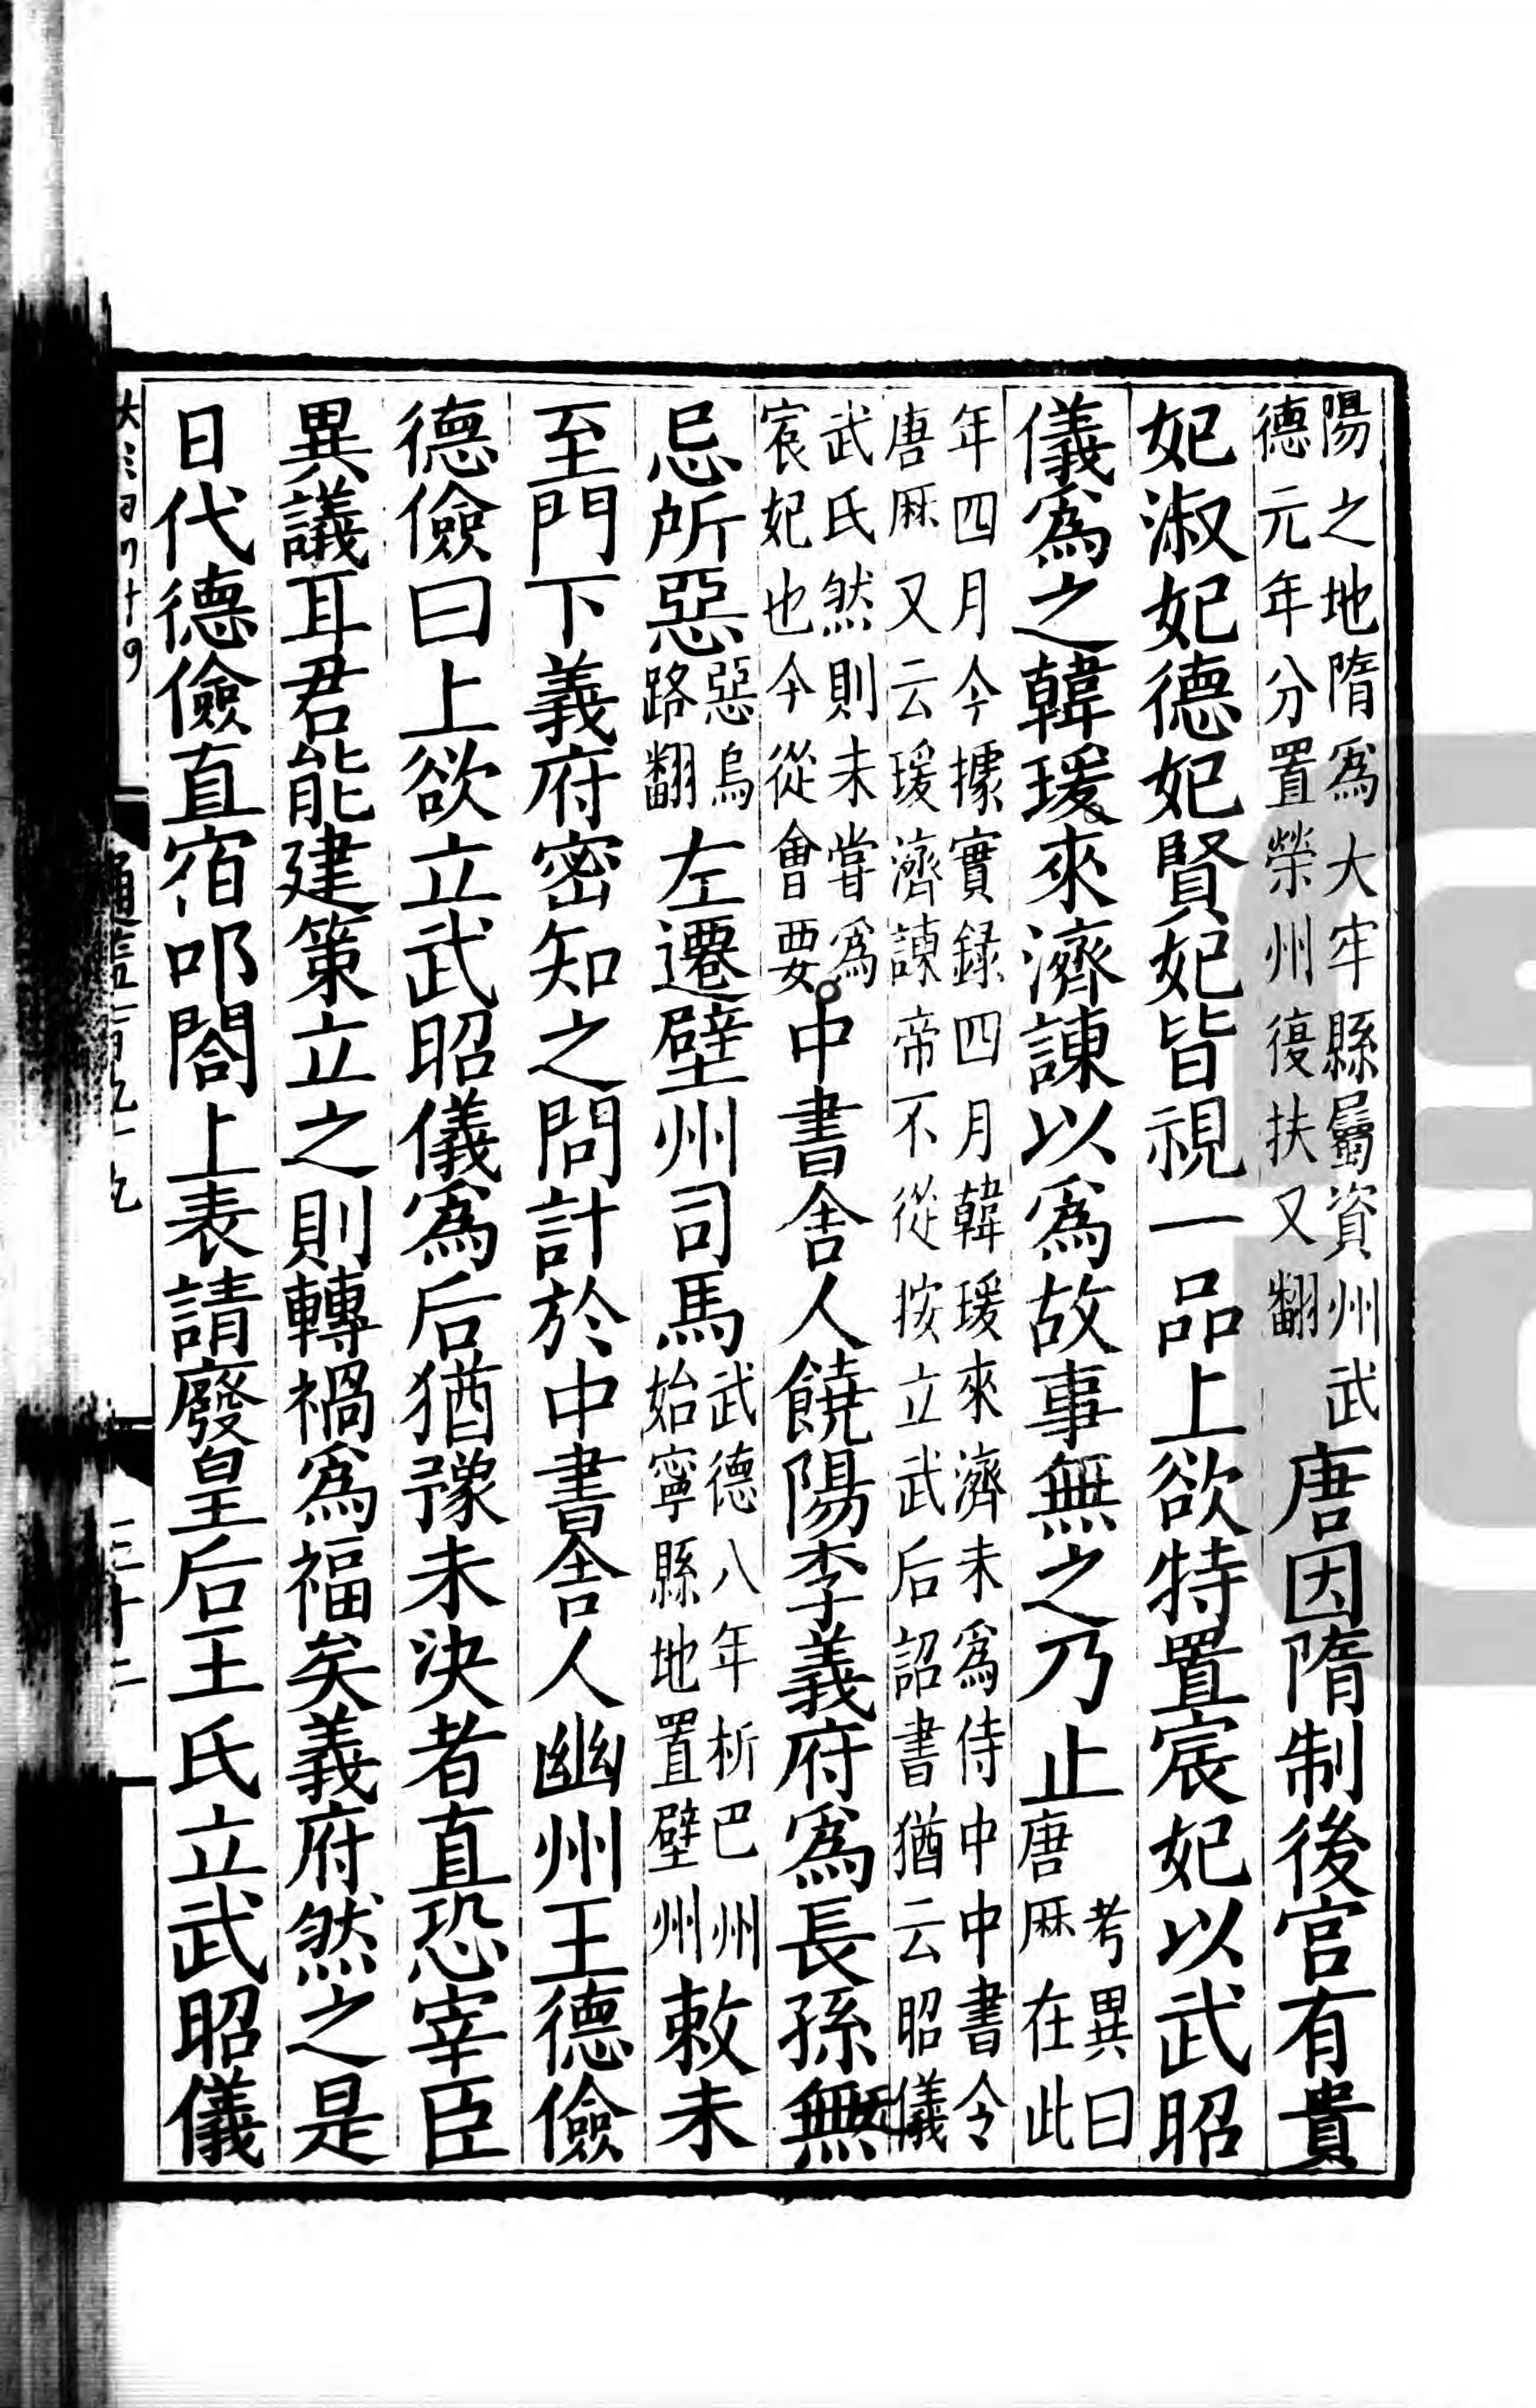 陽之地隋爲大牢縣屬資州武
德元年分置榮州復扶又翻
唐因隋制後宮有貴
妃淑妃德妃賢妃皆視一品上欲特置宸妃以武昭
儀爲之韓瑗來濟諫以爲故事無之乃止
考異曰
唐厤在此
年四月今據實録四月韓瑗來濟未爲侍中中書令
唐厤又云瑗濟諫帝不從按立武后詔書猶云昭儀
武氏然則未嘗爲
宸妃也今從會要
中書舍人饒陽李義府爲長孫無
忌所惡
惡烏
路翻
左遷壁州司馬
武德八年析巴州
始寧縣地置壁州
敕未
至門下義府密知之問計於中書舍人幽州王德儉
德儉曰上欲立武昭儀爲后猶豫未決者直恐宰臣
異議耳君能建策立之則轉禍爲福矣義府然之是
日代德儉直宿叩閤上表請廢皇后王氏立武昭儀